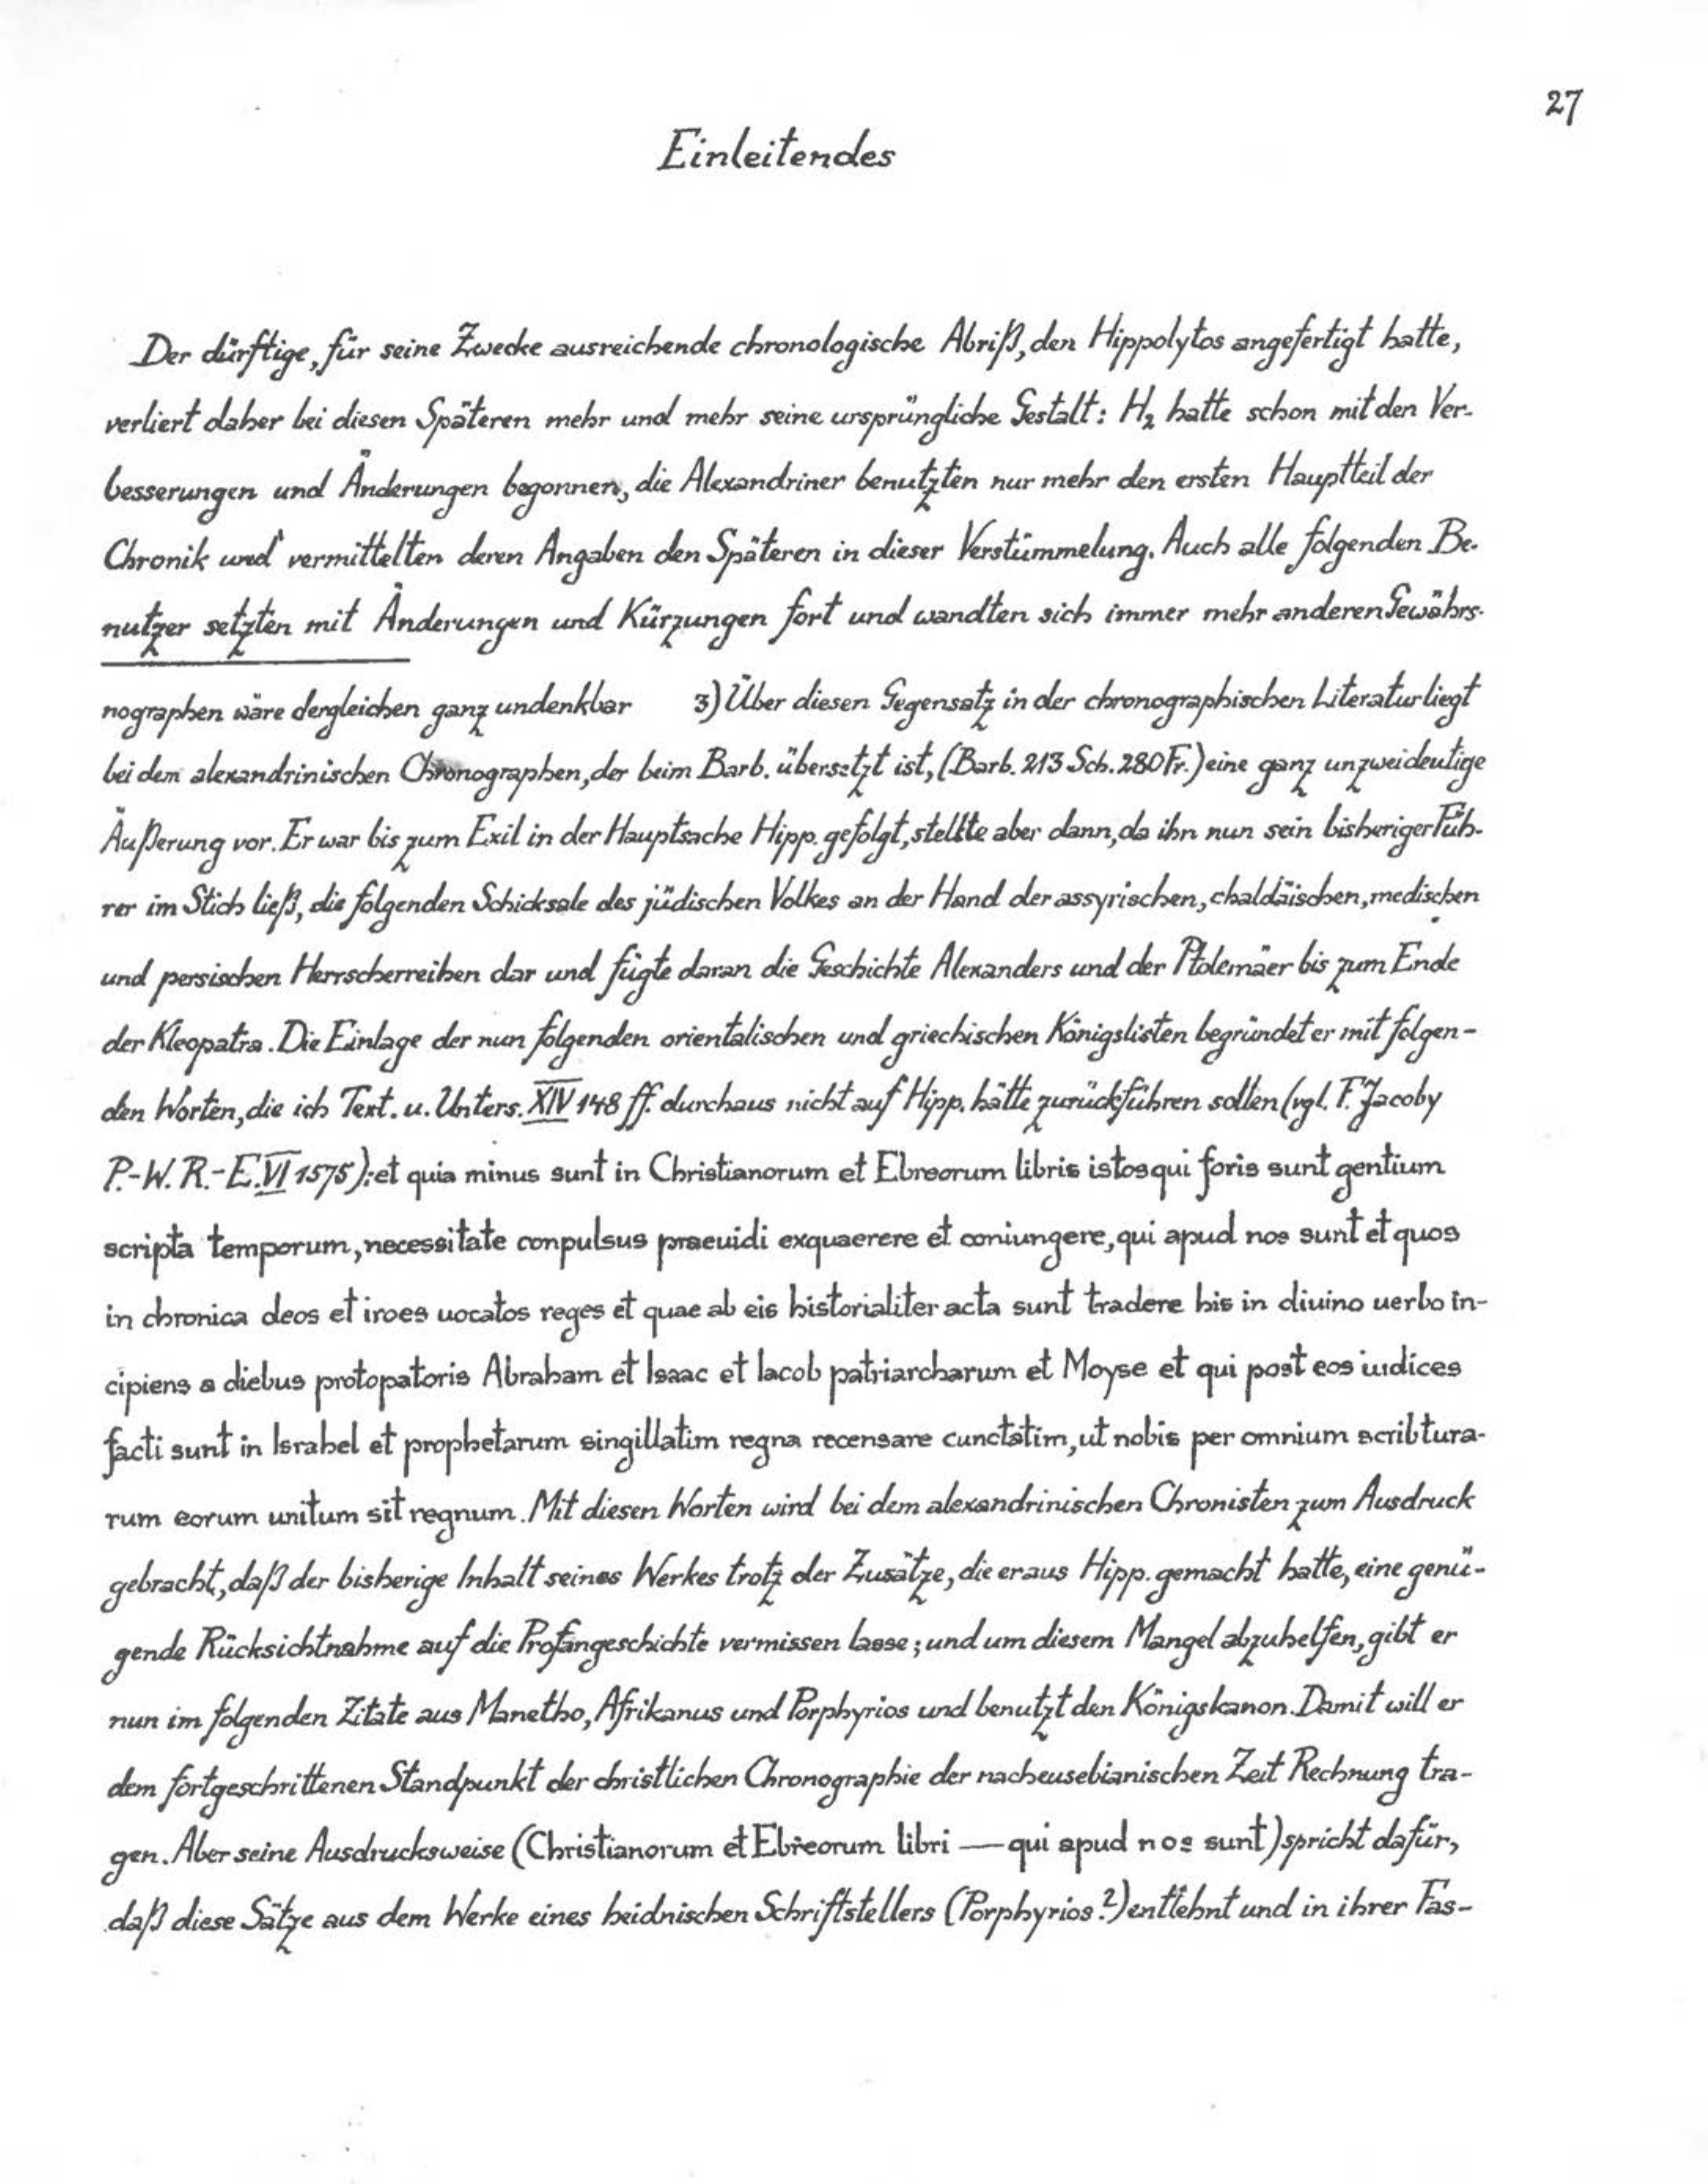 27
Einleitendes
Der dürftige, für seine Zwecke ausreichende chronologische Abriß, den Hippolytos angefertigt hatte,
verliert daher bei diesen Späteren mehr und mehr seine ursprüngliche Gestalt: H₂ hatte schon mit den Ver-
besserungen und Änderungen begonnen, die Alexandriner benutzten nur mehr den ersten Hauptteil der
Chronik und vermittelten deren Angaben den Späteren in dieser Verstümmelung. Auch alle folgenden Be-
nutzer setzten mit Änderungen und Kürzungen fort und wandten sich immer mehr anderen Gewährs-
nographen wäre dergleichen ganz undenkbar 3) Über diesen Gegensatz in der chronographischen Literatur liegt
bei dem alexandrinischen Chronographen, der beim Barb. übersetzt ist, (Barb. 213 Sch. 280 Fr.) eine ganz unzweideutige
Äußerung vor. Er war bis zum Exil in der Hauptsache Hipp. gefolgt, stellte aber dann, da ihn nun sein bisheriger Füh-
rer im Stich ließ, die folgenden Schicksale des jüdischen Volkes an der Hand der assyrischen, chaldäischen, medischen
und persischen Herrscherreihen dar und fügte daran die Geschichte Alexanders und der Ptolemäer bis zum Ende
der Kleopatra. Die Einlage der nun folgenden orientalischen und griechischen Königslisten begründet er mit folgen-
den Worten, die ich Text. u. Unters. XIV 148 ff. durchaus nicht auf Hipp. hätte zurückführen sollen (vgl. F. Jacoby
P.-W. R.-E. VI 1575): et quia minus sunt in Christianorum et Ebreorum libris istos qui foris sunt gentium
scripta temporum, necessitate conpulsus praeuidi exquaerere et coniungere, qui apud nos sunt et quos
in chronica deos et iroes uocatos reges et quae ab eis historialiter acta sunt tradere his in diuino uerbo in-
cipiens a diebus protopatoris Abraham et Isaac et Iacob patriarcharum et Moyse et qui post eos iudices
facti sunt in Israhel et prophetarum singillatim regna recensare cunctatim, ut nobis per omnium scribtura-
rum eorum unitum sit regnum. Mit diesen Worten wird bei dem alexandrinischen Chronisten zum Ausdruck
gebracht, daß der bisherige Inhalt seines Werkes trotz der Zusätze, die er aus Hipp. gemacht hatte, eine genü-
gende Rücksichtnahme auf die Profangeschichte vermissen lasse; und um diesem Mangel abzuhelfen, gibt er
nun im folgenden Zitate aus Manetho, Afrikanus und Porphyrios und benutzt den Königskanon. Damit will er
dem fortgeschrittenen Standpunkt der christlichen Chronographie der nacheusebianischen Zeit Rechnung tra-
gen. Aber seine Ausdrucksweise (Christianorum et Ebreorum libri — qui apud nos sunt) spricht dafür,
daß diese Sätze aus dem Werke eines heidnischen Schriftstellers (Porphyrios?) entlehnt und in ihrer Fas-